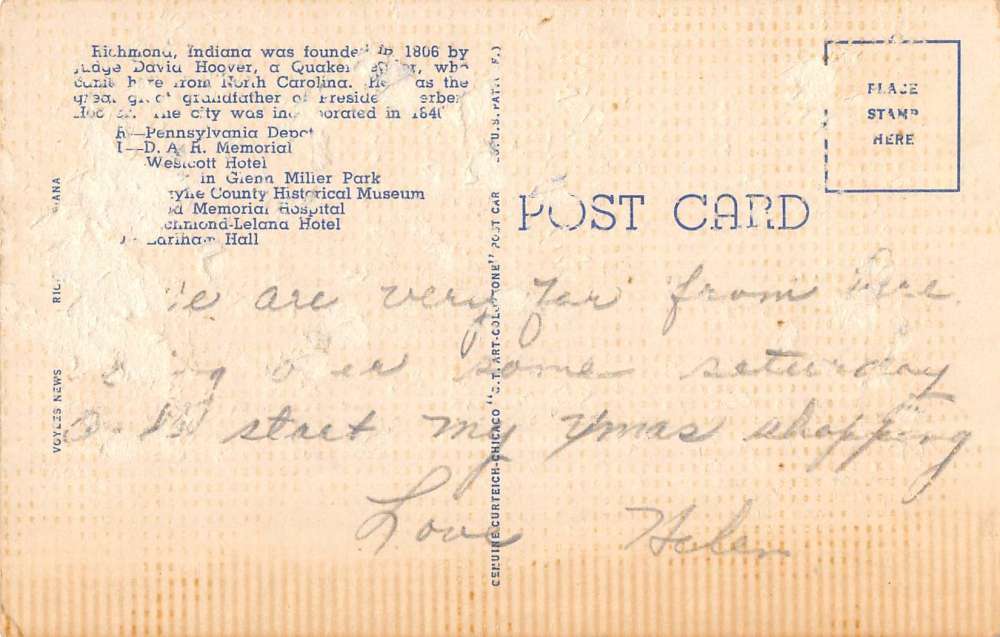 Richmond, Indiana was founded in 1806 by
Judge David Hoover, a Quaker, who
came here from North Carolina. He was the
great great grandfather of President Herbert
Hoover. The city was incorporated in 1840
R—Pennsylvania Depot
I—D. A. R. Memorial
Westcott Hotel
in Glenn Miller Park
Wayne County Historical Museum
Reid Memorial Hospital
Richmond-Leland Hotel
D—Earlham Hall
PLACE
STAMP
HERE
POST CARD
VOYLES NEWS
GENUINE CURTEICH-CHICAGO "C.T. ART-COLORTONE" POST CARD (REG. U.S. PAT. OFF.)
are very far from here.
over some saturday
I'll start my Xmas shopping
Love Helen